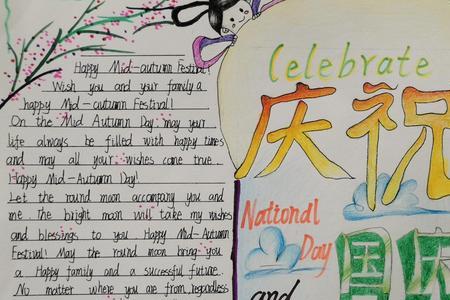 Happy Mid-autumn Festival!
Wish you and your family a
happy Mid-autumn Festival!
On the Mid Autumn Day may your
life always be filled with happy times
and may all your wishes come true.
Happy Mid-Autumn Day!
Let the round moon accompany you and
me. The bright moon will take my wishes
and blessings to you. Happy Mid-Autumn
Festival! May the round moon bring you
a Happy family and a successful future.
No matter where you are from, regardless
Celebrate
庆祝
National
Day
国庆
and